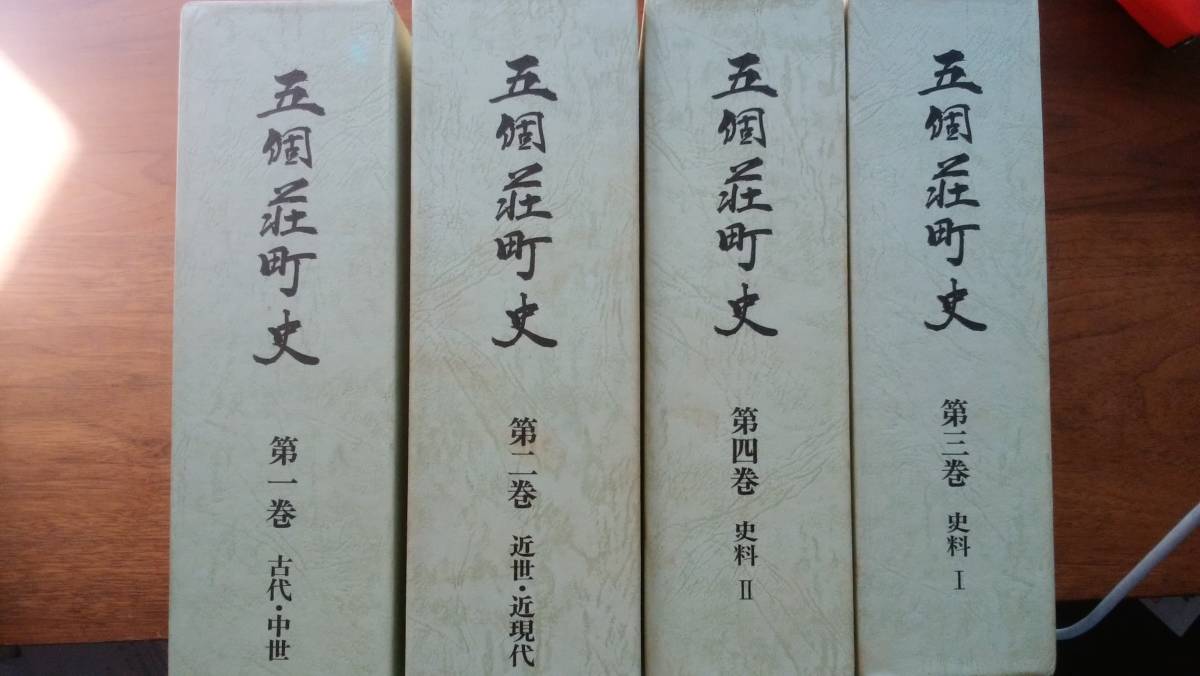 五個荘町史 第一巻 古代・中世
五個荘町史 第二巻 近世・近現代
五個荘町史 第四巻 史料 II
五個荘町史 第三巻 史料 I